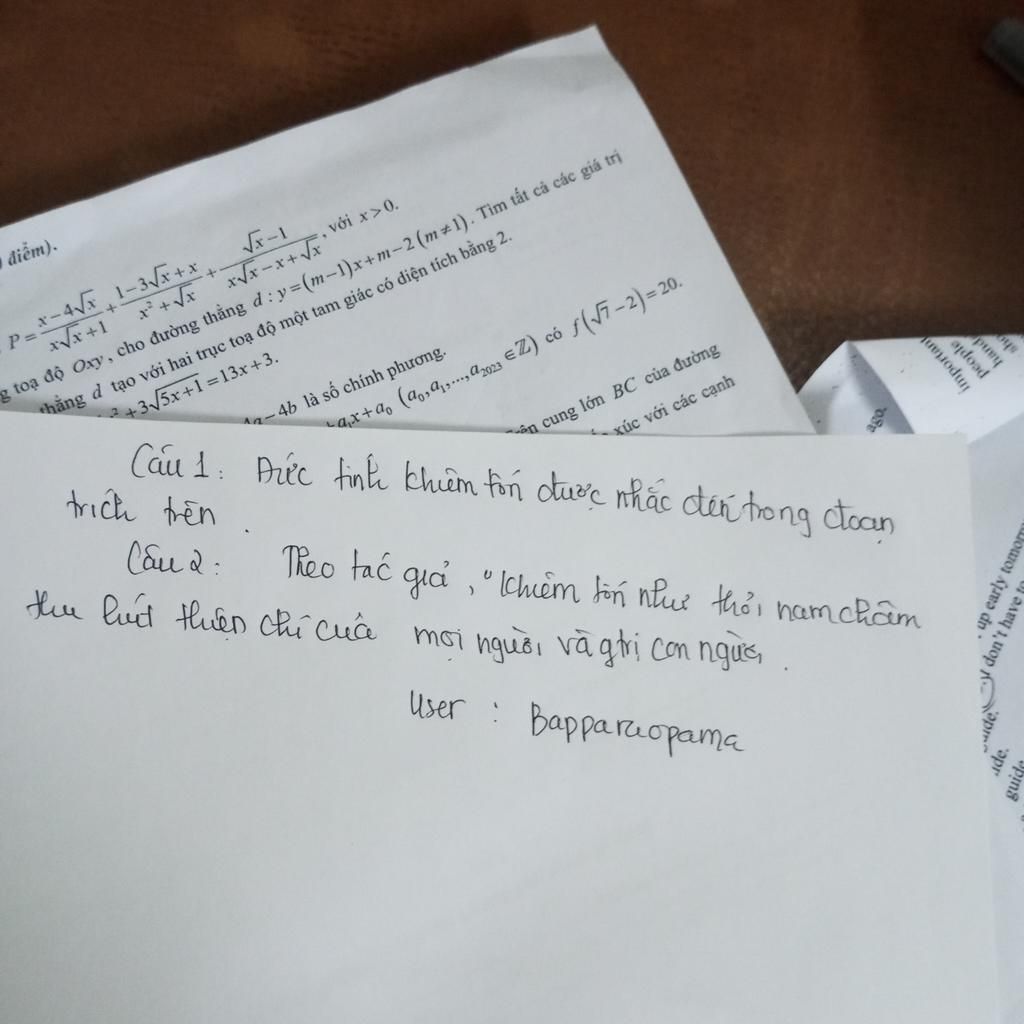 điểm).
P = (x-4√x)/(x√x+1) + (1-3√x+x)/(x²+√x) + (√x-1)/(x√x-x+√x), với x > 0.
toạ độ Oxy, cho đường thẳng d : y = (m-1)x + m-2 (m ≠ 1). Tìm tất cả các giá trị
thẳng d tạo với hai trục toạ độ một tam giác có diện tích bằng 2.
² + 3√(5x+1) = 13x + 3.
- 4b là số chính phương.
x + a₀ (a₀, a₁, ..., a₂₀₂₃ ∈ ℤ) có f(√7 - 2) = 20.
cung lớn BC của đường
xúc với các cạnh
Câu 1: Đức tính khiêm tốn được nhắc đến trong đoạn
trích trên.
Câu 2: Theo tác giả, "Khiêm tốn như thỏi nam châm
thu hút thiện chí của mọi người và gtrị con người.
User : Bapparaopama
important
people
hand
ago.
up early tomorr
don't have to
ide.
guide